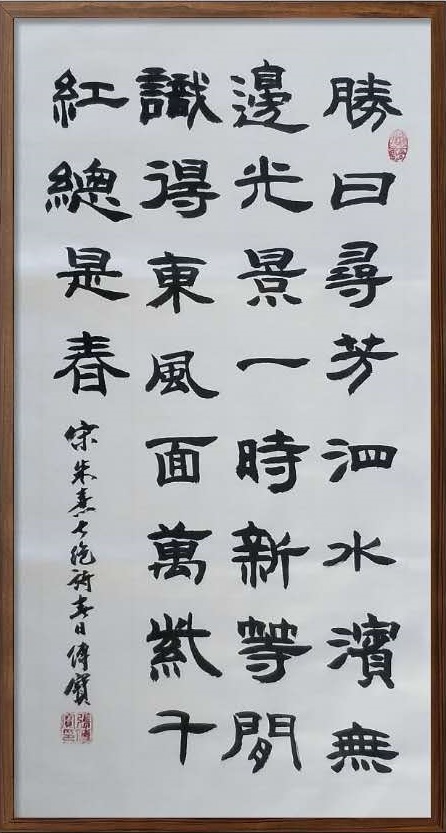 勝日尋芳泗水濱無
邊光景一時新等間
識得東風面萬紫千
紅總是春
宋朱熹七绝詩春日傳寶